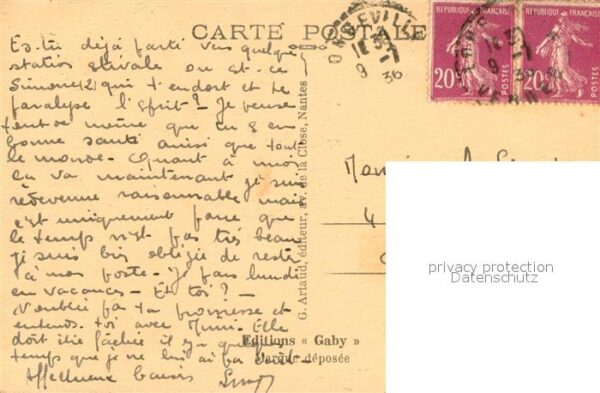 CARTE POSTALE
ORBEVILLE
9
36
RÉPUBLIQUE FRANÇAISE
20c
POSTES
20c
POSTES
Es-tu déjà parti vers quelque
station estivale ou est-ce
Simone qui t'endort et te
paralyse l'esprit? Je pense
tout de même que tu es en
bonne santé ainsi que tout
le monde. Quant à moi
ça va maintenant je suis
redevenue raisonnable mais
c'est uniquement parce que
le temps n'est pas très beau
je suis bien obligée de rester
à mon poste. Je pars lundi
en vacances - Et toi? -
N'oublie pas ta promesse et
entends-toi avec Mimi. Elle
doit être fâchée il y a quelque
temps que je ne lui ai pas écrit -
Affectueux baisers
G. Artaud, éditeur, av. de la Close, Nantes
Editions « Gaby »
Marque déposée
Monsieur A.
4
privacy protection
Datenschutz